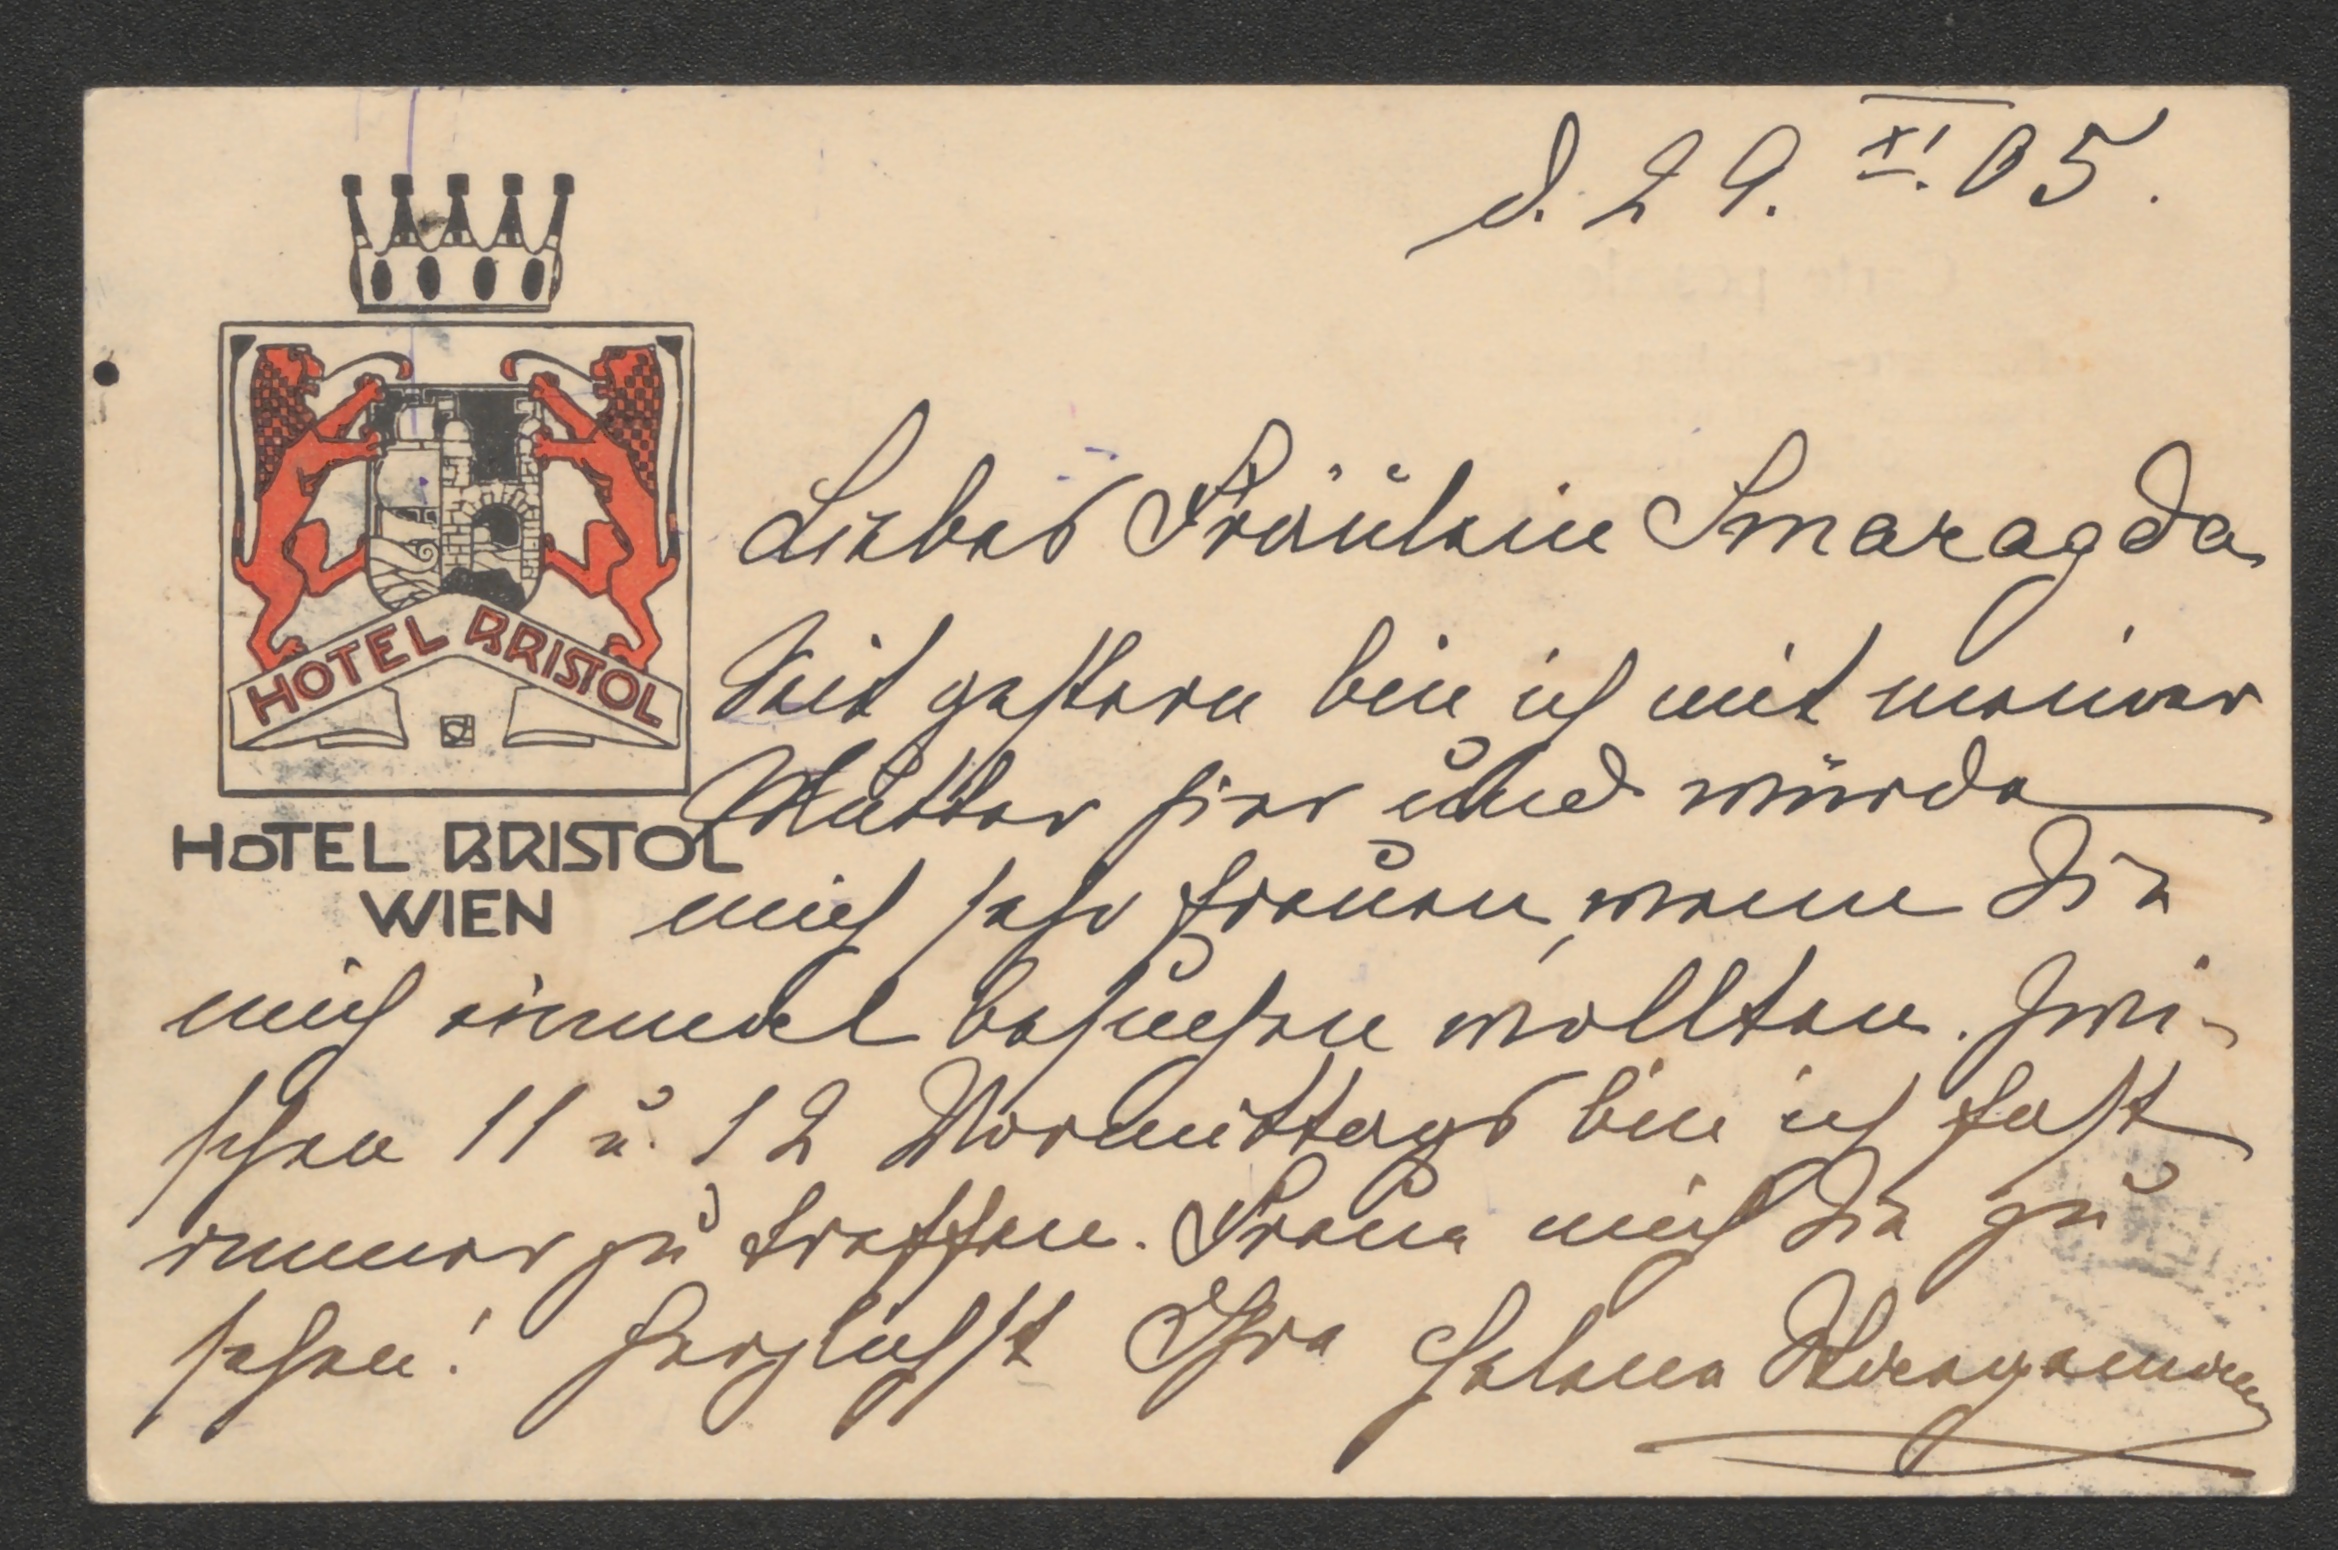 d. 29. XI. 05.
HOTEL BRISTOL
HOTEL BRISTOL
WIEN
Liebes Fräulein Smaragda
Seit gestern bin ich mit meiner
Mutter hier und würde
mich sehr freuen, wenn Sie
mich einmal besuchen wollten. Zwi-
schen 11 u. 12 Vormittags bin ich fast
immer zu treffen. Freue mich Sie zu
sehen! Herzlichst Ihre Helene